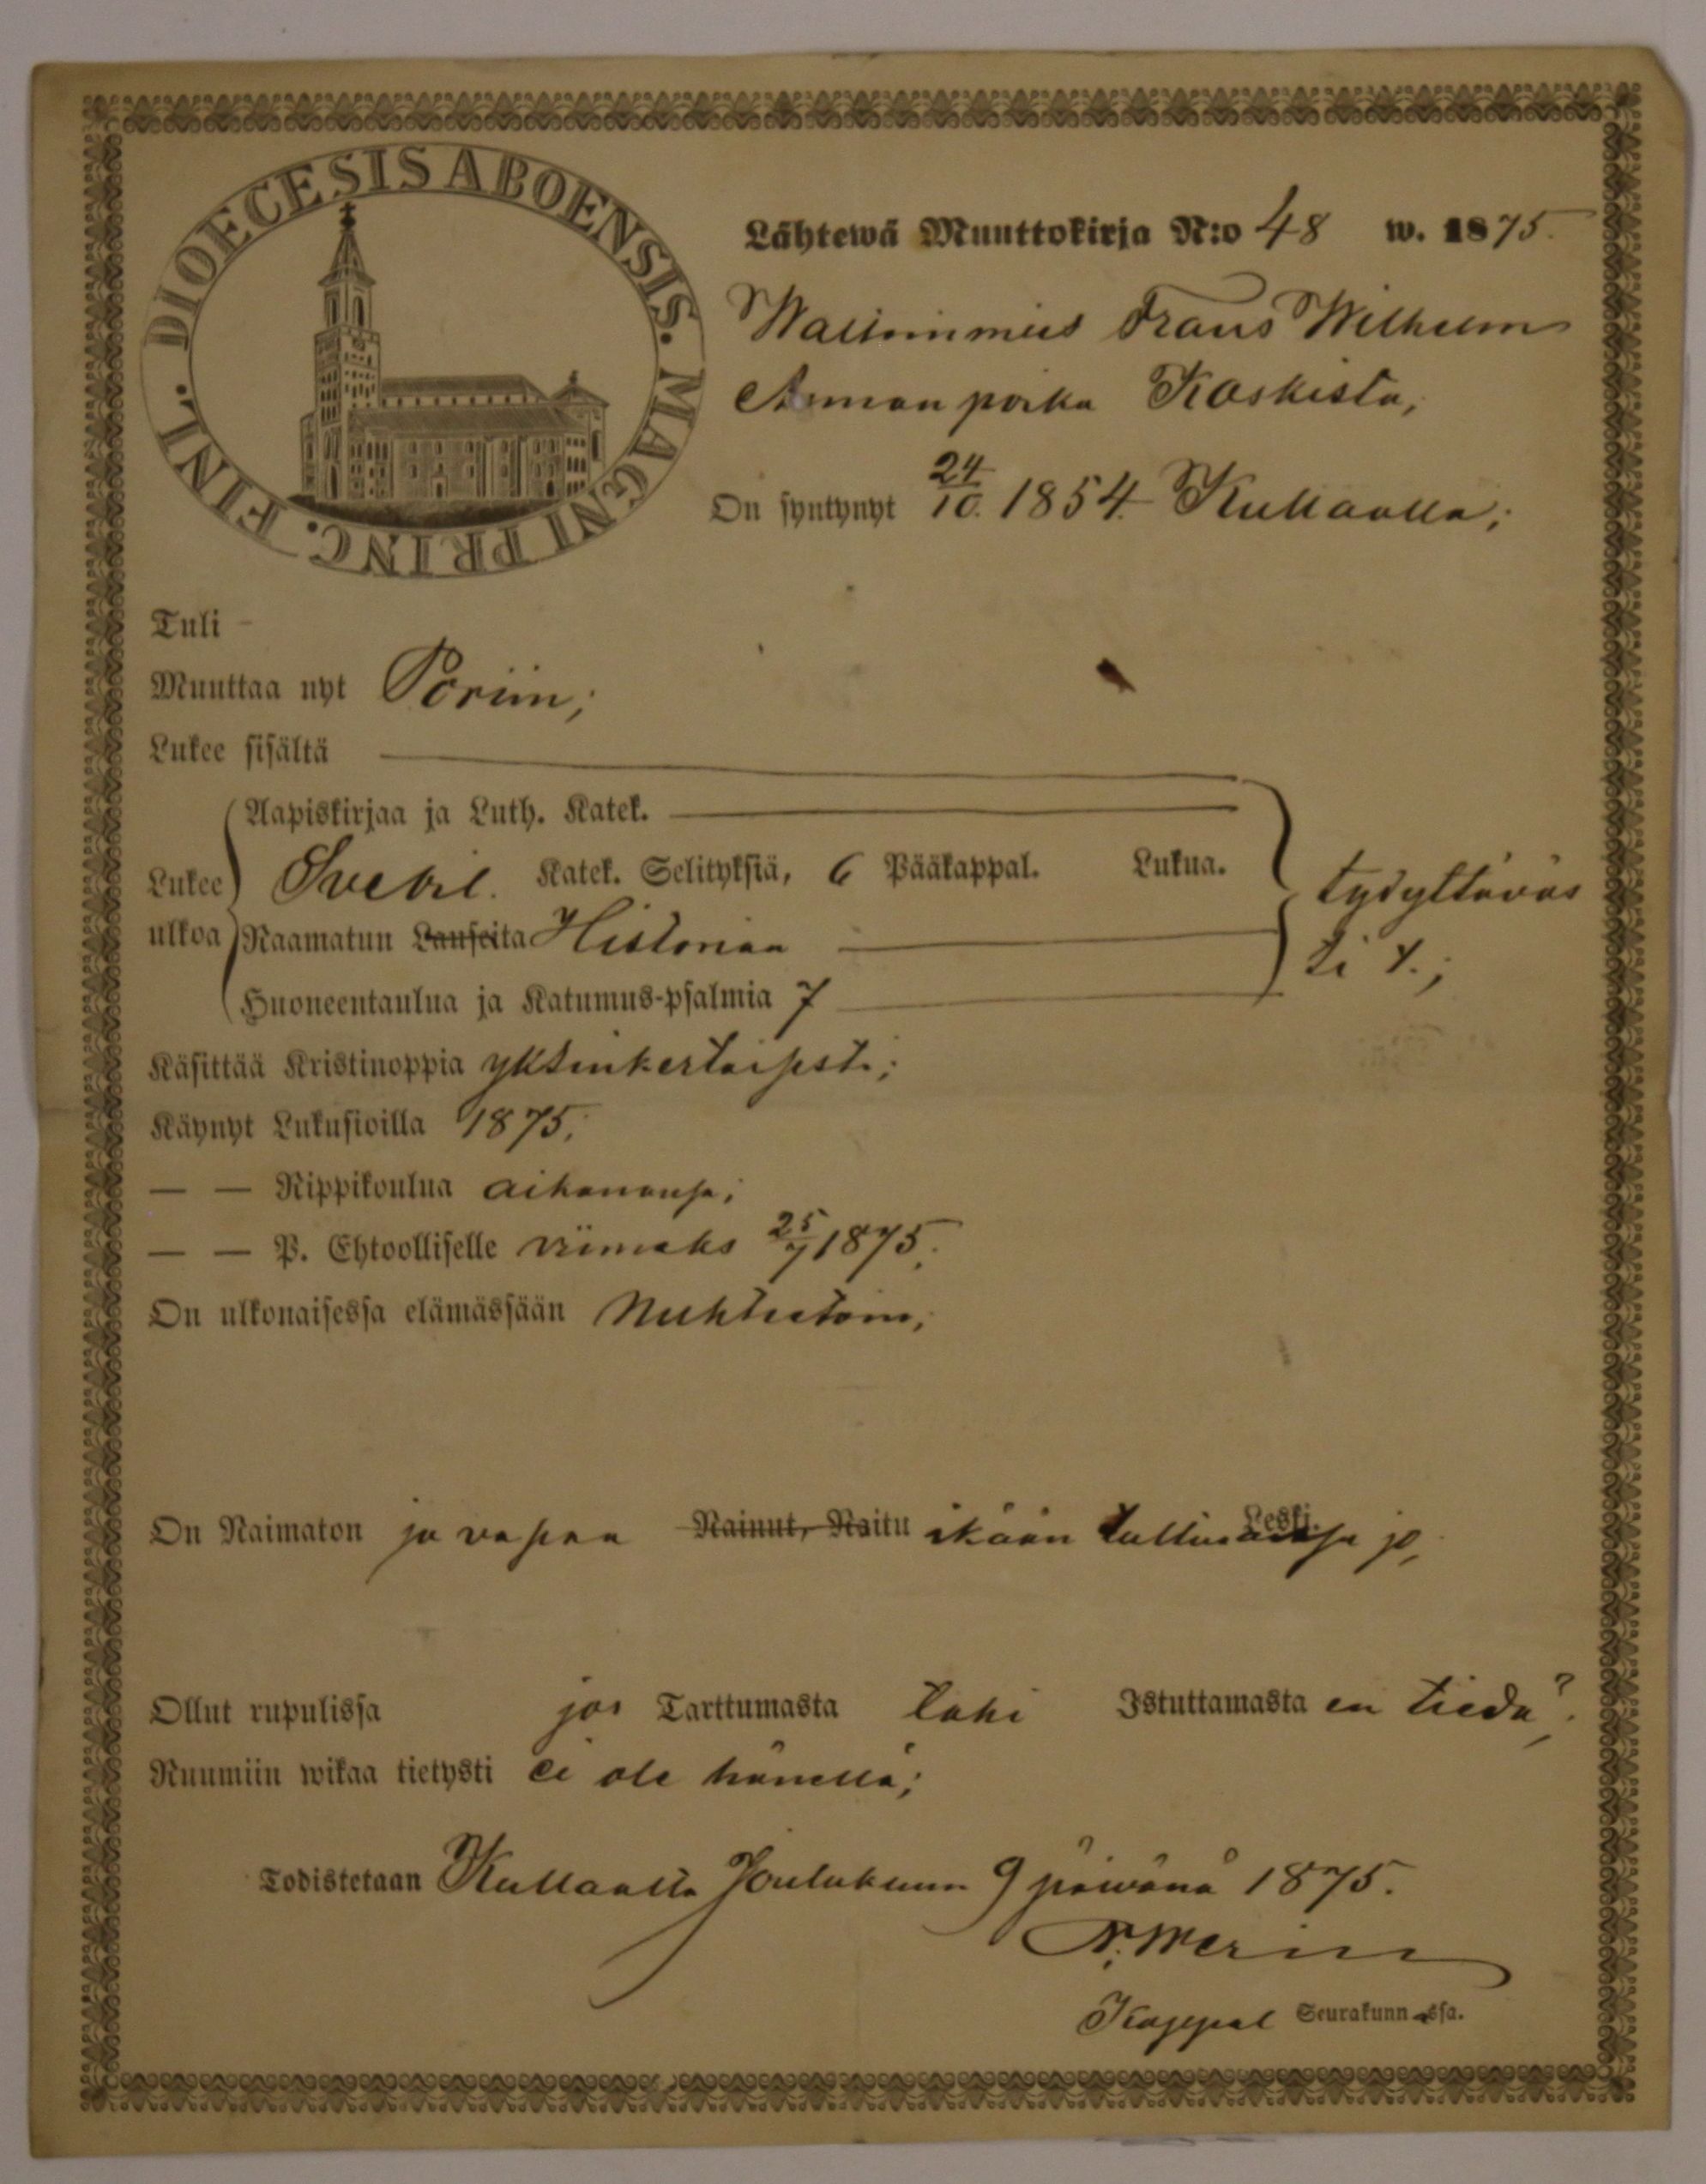 DIOECESIS ABOENSIS. MAGNI PRINC. FINL.
Lähtewä Muuttokirja N:o 48 w. 1875.
Frans Wilhelm
Annan poika Koskista,
On syntynyt 24/10. 1854. Kullaalla;
Tuli
Muuttaa nyt Poriin;
Lukee sisältä
Aapiskirjaa ja Luth. Katek.
Lukee Svebil. Katek. Selityksiä, 6 Pääkappal. Lukua. tydyttäväs
ulkoa Raamatun Lauseita Historiaa ti
Huoneentaulua ja Katumus-psalmia 7
Käsittää Kristinoppia yksinkertaisesti;
Käynyt Lukusioilla 1875;
— — Rippikoulua aikananssa;
— — P. Ehtoolliselle viimeks 25/7 1875.
On ulkonaisessa elämässään Nuhteetoin;
On Naimaton ja vapaa Nainut, Naitu ikään tultuansa Leski. jo,
Ollut rupulissa jos Tarttumasta tahi Istuttamasta en tiedä?
Ruumiin wikaa tietysti ei ole hänellä;
Todistetaan Kullaalla Joulukuun 9 päivänä 1875.
Kappal Seurakunnassa.